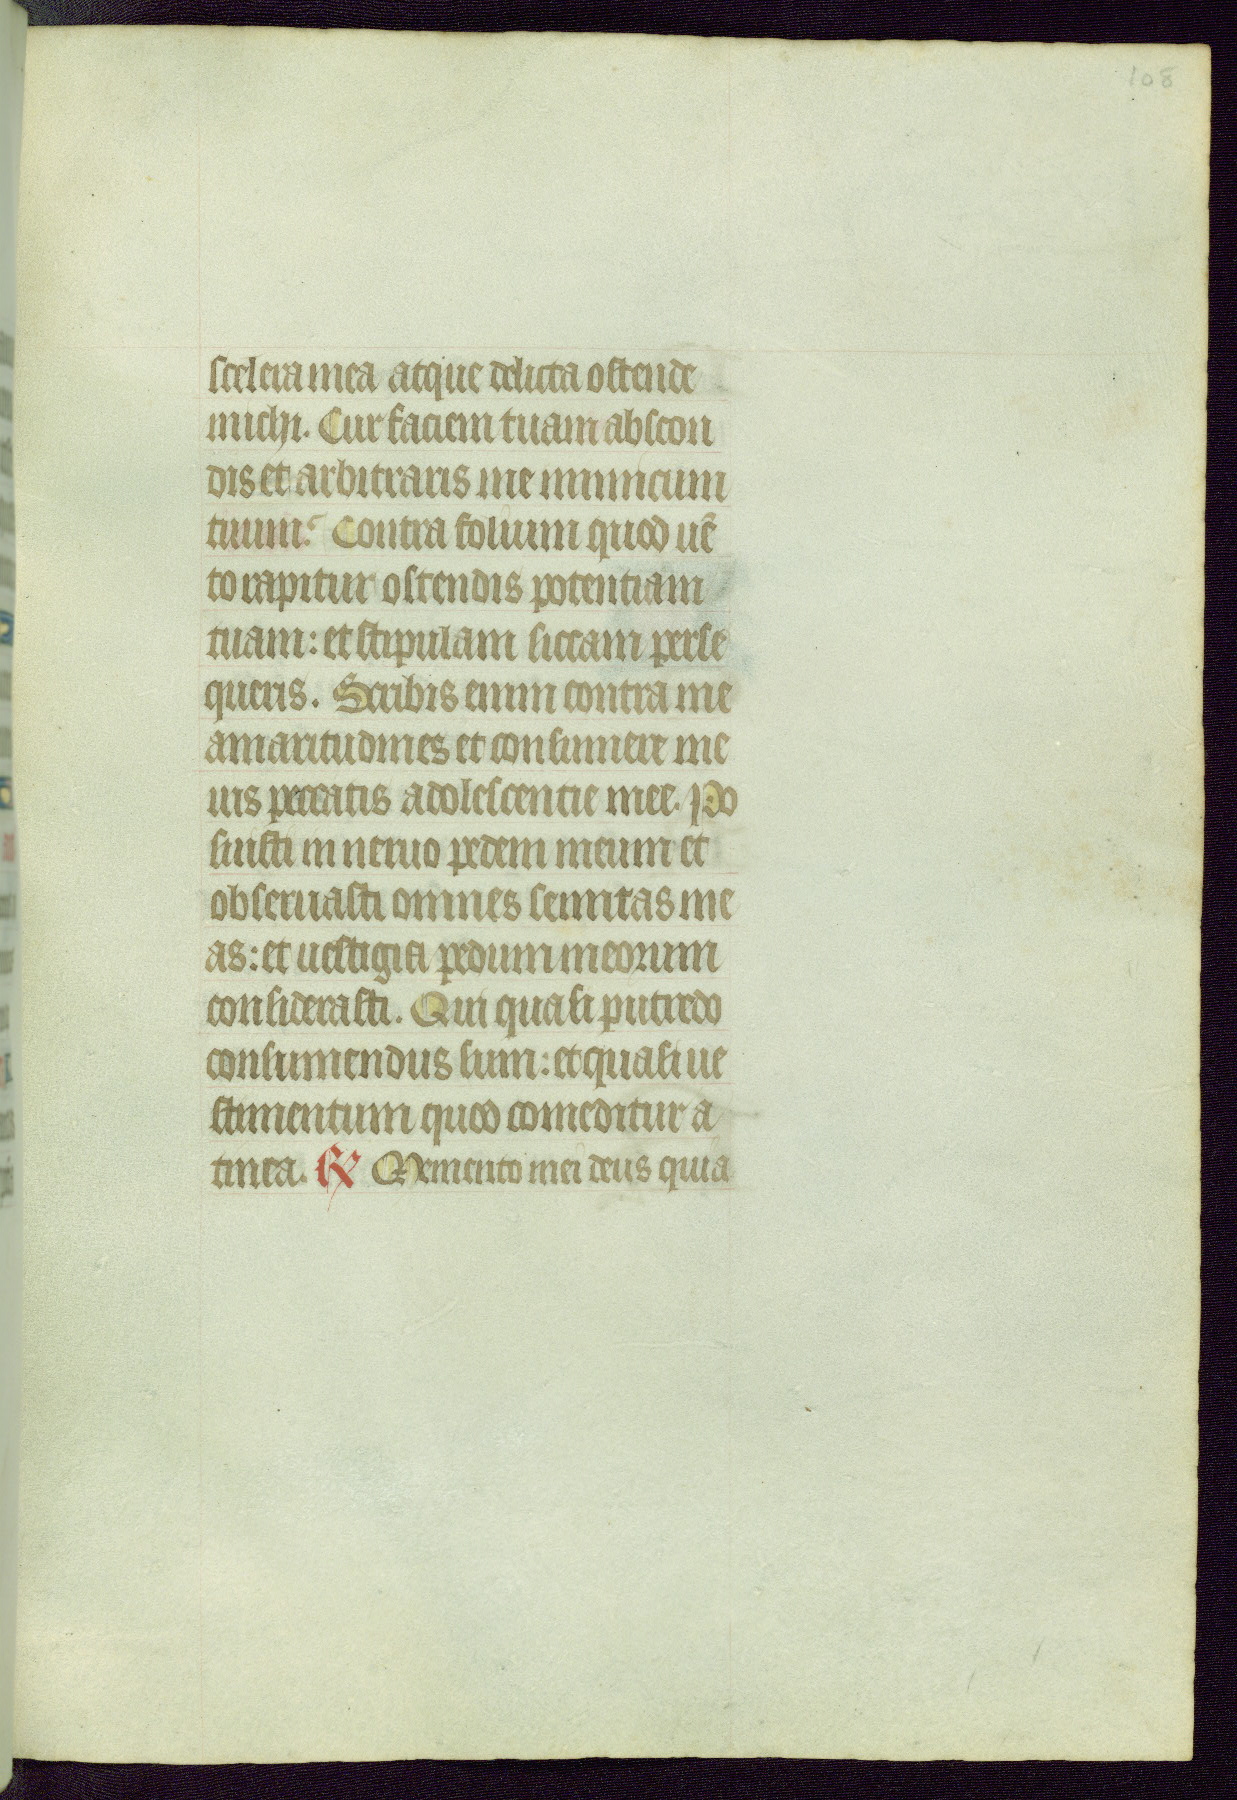 108
scelera mea atque delicta ostende
michi. Cur faciem tuam abscon
dis et arbitraris me inimicum
tuum? Contra folium quod uē
to rapitur ostendis potentiam
tuam: et stipulam siccam perse
queris. Scribis enim contra me
amaritudines et consumere me
uis peccatis adolescentie mee. Po
suisti in neruo pedem meum et
obseruasti omnes semitas me
as: et uestigia pedum meorum
considerasti. Qui quasi putredo
consumendus sum: et quasi ue
stimentum quod comeditur a
tinea. ℟ Memento mei deus quia